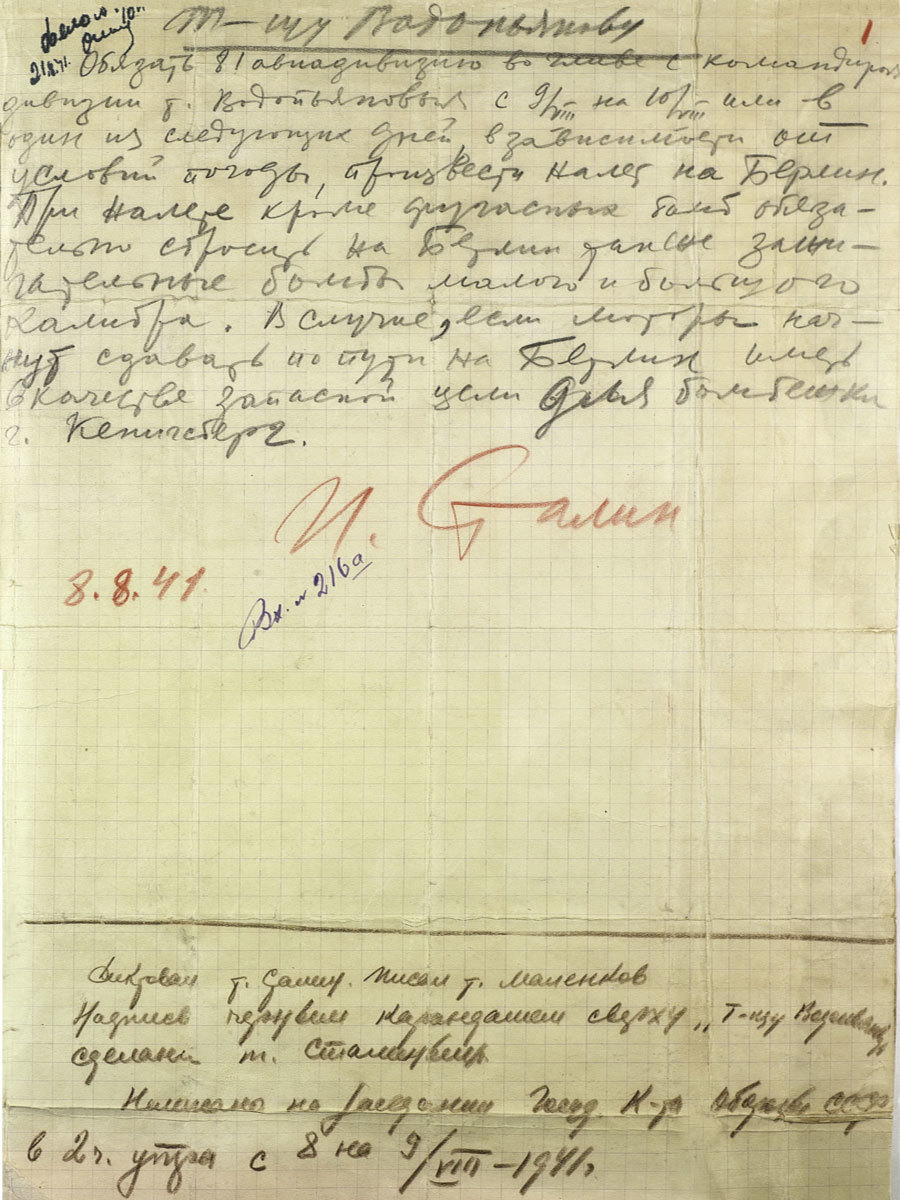 Т-щу Водопьянову
1
Обязать 81 авиадивизию во главе с командиром
дивизии т. Водопьяновым с 9/VIII на 10/VIII или в
один из следующих дней, в зависимости от
условий погоды, произвести налет на Берлин.
При налете кроме фугасных бомб обяза-
тельно сбросить на Берлин также зажи-
гательные бомбы малого и большого
калибра. В случае, если моторы нач-
нут сдавать по пути на Берлин иметь
в качестве запасной цели для бомбежки
г. Кенигсберг.
И. Сталин
8.8.41.
Вх. № 216а
Диктовал т. Сталин. Писал т. Маленков
Надпись черным карандашем сверху „Т-щу Водопьянову
сделана т. Сталиным
Написано на заседании Госуд. К-та Обороны СССР
в 2 ч. утра с 8 на 9/VIII-1941 г.